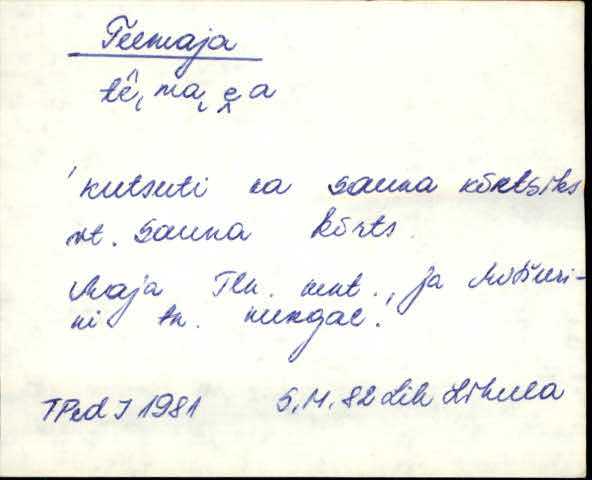 Teemaja
tē̬, ma, e̬ a
'kutsuti ka sauna kõrtsiks
vt. sauna kõrts.
Maja Tln. mnt., ja Mitšuri-
ni tn. nurgal.'
TPed I 1981 S.M. 82 Lih Lihula